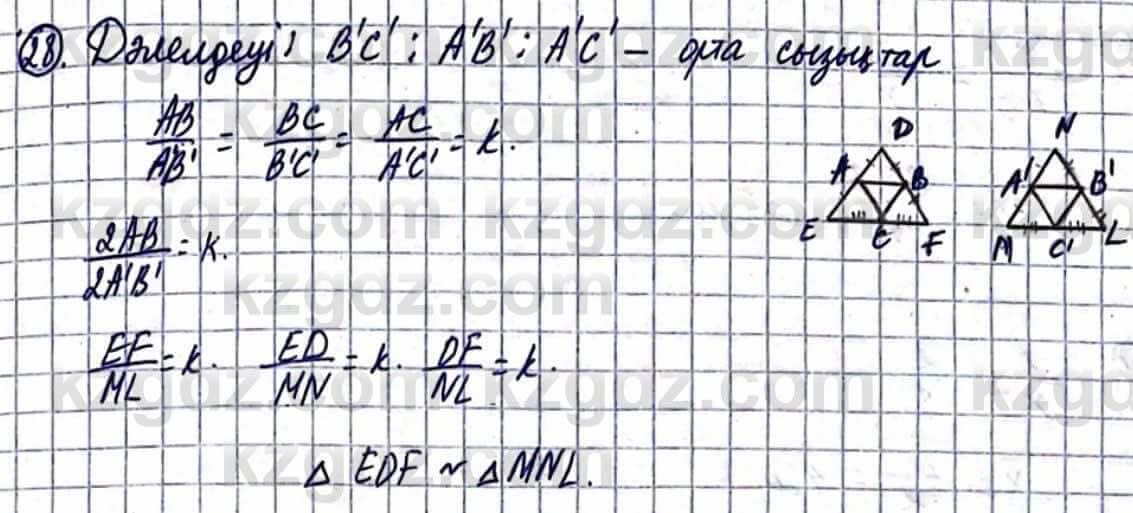 28. Дәлелдеуі: B'C'; A'B'; A'C' – орта сызықтар
AB/A'B' = BC/B'C' = AC/A'C' = k.
2AB/2A'B' = k.
EF/ML = k. ED/MN = k. DF/NL = k.
△ EDF ~ △ MNL.
D
A B
E C F
N
A' B'
M C' L
kzgdz.com